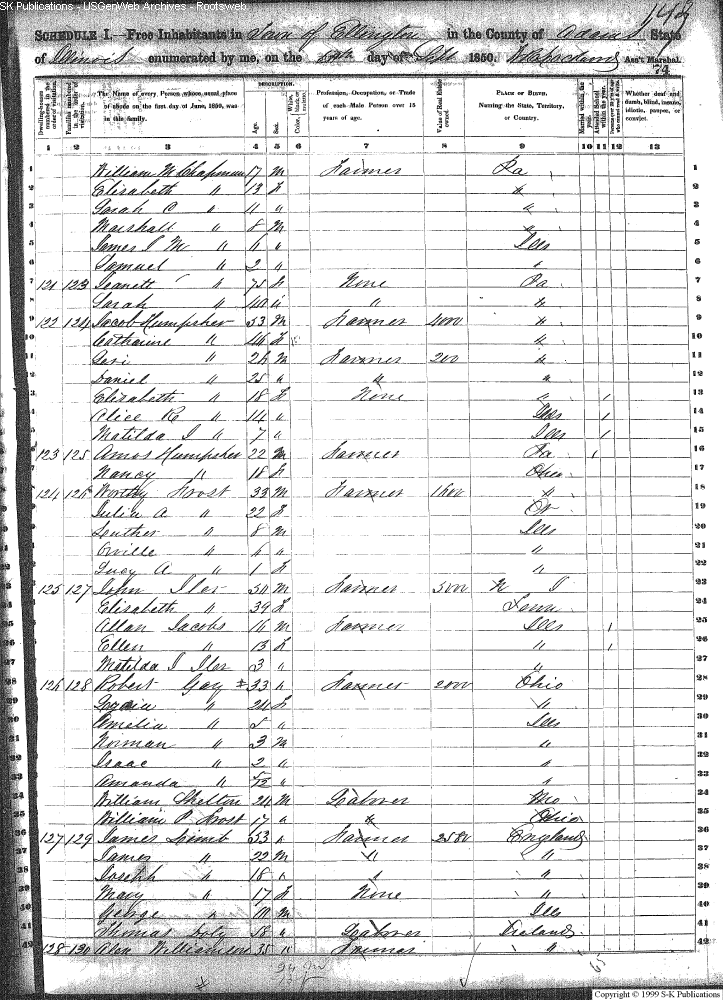 SK Publications - USGenWeb Archives - Rootsweb
149
SCHEDULE I.—Free Inhabitants in Town of Ellington in the County of Adams State
of Illinois enumerated by me, on the day of Sept 1850. Ass't Marshal.
74
DESCRIPTION.
Dwelling-houses numbered in the order of visitation.
Families numbered in the order of visitation.
The Name of every Person whose usual place of abode on the first day of June, 1850, was in this family.
Age.
Sex.
Color,
Profession, Occupation, or Trade of each Male Person over 15 years of age.
Value of Real Estate owned.
PLACE OF BIRTH. Naming the State, Territory, or Country.
Married within the year.
Attended School within the year.
Whether deaf and dumb, blind, insane, idiotic, pauper, or convict.
1 2 3 4 5 6 7 8 9 10 11 12 13
1 William M Chapman 17 M Farmer Pa 1
2 Elisabeth " 13 F " 2
3 Sarah C " 11 " " 3
4 Marshall " 8 M " 4
5 James I M " 6 " Ills 5
6 Samuel " 2 " " 6
7 121 123 Jenett " 75 F None Pa 7
8 Sarah " 40 " " " 8
9 122 124 Jacob Humpsher 53 M Farmer 4000 " 9
10 Catharine " 46 F " 10
11 Levi " 26 M Farmer 200 " 11
12 Daniel " 25 " " " 12
13 Elizabeth " 18 F None " 1 13
14 Alice R " 14 " Ills 1 14
15 Matilda J " 7 " Ills 1 15
16 123 125 Amos Humpsher 22 M Farmer Pa 1 16
17 Nancy " 18 F Ohio 17
18 124 126 Worthy Frost 33 M Farmer 1600 " 18
19 Julia A " 22 F 19
20 Leuther " 8 M Ills 20
21 Orville " 6 " " 21
22 Lucy A " 1 F " 22
23 125 127 John Iler 50 M Farmer 5000 N J 23
24 Elisabeth " 39 F Tenn 24
25 Allan Jacobs 16 M Farmer Ills 1 25
26 Ellen " 13 F " 1 26
27 Matilda J Iler 3 " " 27
28 126 128 Robert Gay 33 " Farmer 2000 Ohio 28
29 " 24 F " 29
30 Amelia " 5 " Ills 30
31 Norman " 3 M " 31
32 Isaac " 2 " " 32
33 Amanda " 5/12 " " 33
34 William Skelton 24 M Labover Mo 34
35 William P. Frost 17 " " Ohio 35
36 127 129 James Limb 53 " Farmer 2580 England 36
37 James " 22 M " " 37
38 Joseph " 18 " " " 38
39 Mary " 17 F None " 39
40 George " 10 M Ills 40
41 Thomas Doty 58 " Labover Ireland 41
42 128 130 Alex Williamson 35 " Farmer " 42
65
Copyright © 1999 S-K Publications